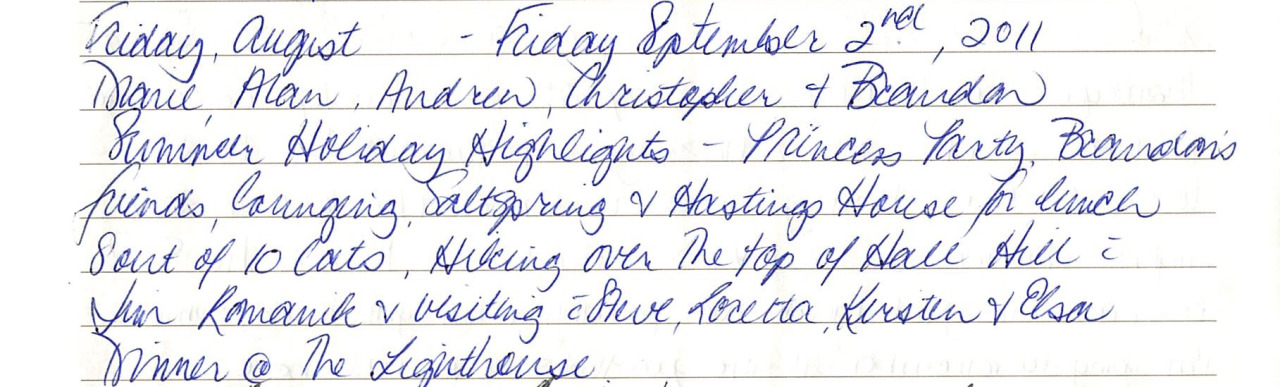 Friday, August - Friday September 2nd, 2011
Diane, Alan, Andrew, Christopher + Brandon
Summer Holiday Highlights - Princess Party, Brandon's
friends, lounging, Saltspring & Hastings House for lunch
8 out of 10 Cats, Hiking over The top of Hall Hill c̄
Jim Romanik & visiting c̄ Steve, Loretta, Kirsten & Elsa
Dinner @ The Lighthouse